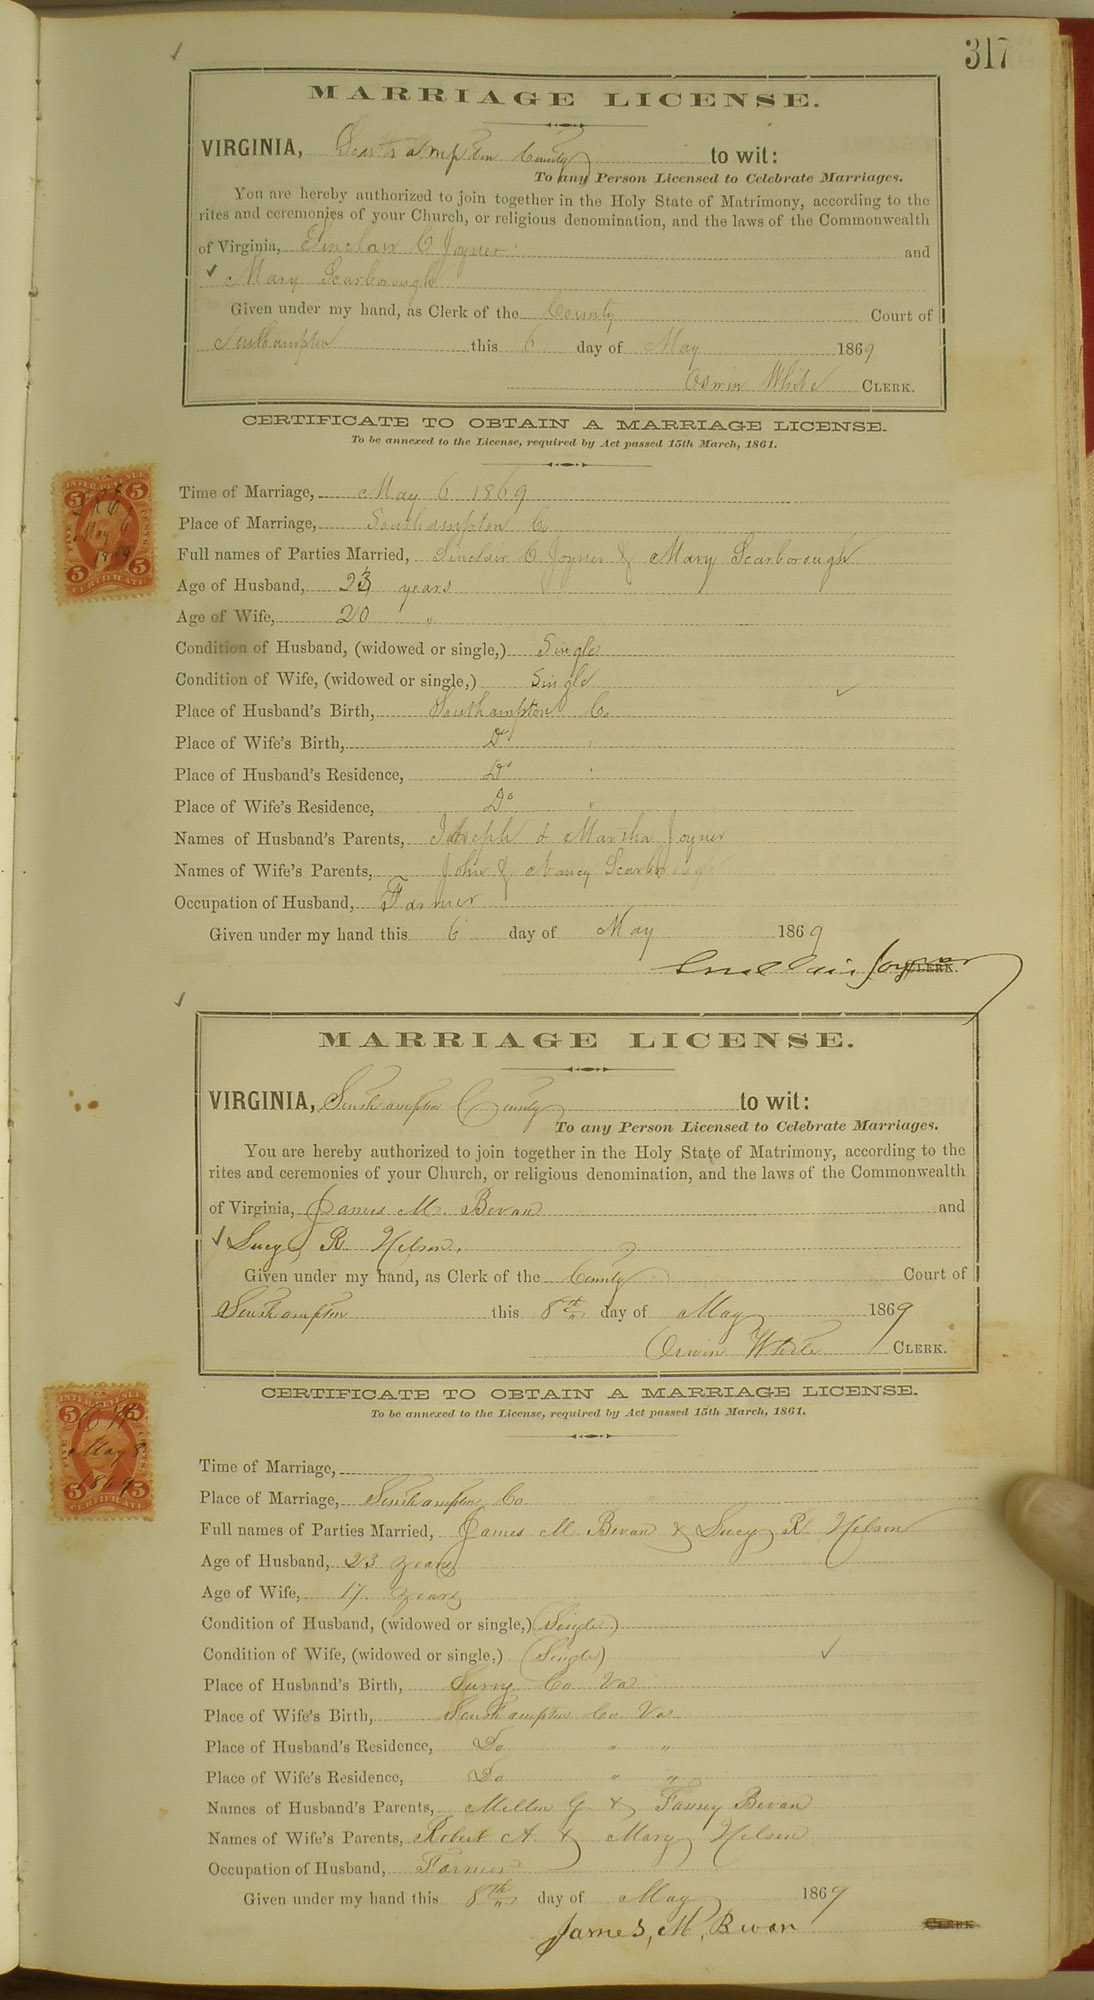 317
MARRIAGE LICENSE.
VIRGINIA, Southampton County to wit:
To any Person Licensed to Celebrate Marriages.
You are hereby authorized to join together in the Holy State of Matrimony, according to the
rites and ceremonies of your Church, or religious denomination, and the laws of the Commonwealth
of Virginia, Sinclair C Joyner and
Mary Scarborough
Given under my hand, as Clerk of the County Court of
Southampton this 6 day of May 1869
Orwin White CLERK.
CERTIFICATE TO OBTAIN A MARRIAGE LICENSE.
To be annexed to the License, required by Act passed 15th March, 1861.
Time of Marriage, May 6 1869
Place of Marriage, Southampton Co
Full names of Parties Married, Sinclair C Joyner & Mary Scarborough
Age of Husband, 23 years
Age of Wife, 20 "
Condition of Husband, (widowed or single,) Single
Condition of Wife, (widowed or single,) Single
Place of Husband's Birth, Southampton Co
Place of Wife's Birth, Do
Place of Husband's Residence, Do
Place of Wife's Residence, Do
Names of Husband's Parents, Joseph & Martha Joyner
Names of Wife's Parents, John & Nancy Scarborough
Occupation of Husband, Farmer
Given under my hand this 6 day of May 1869
Sinclair Joyner CLERK.
INTER. REVENUE
5 5
May 6
1869
FIVE CENTS
5 5
CERTIFICATE
MARRIAGE LICENSE.
VIRGINIA, Southampton County to wit:
To any Person Licensed to Celebrate Marriages.
You are hereby authorized to join together in the Holy State of Matrimony, according to the
rites and ceremonies of your Church, or religious denomination, and the laws of the Commonwealth
of Virginia, James M. Bevan and
Lucy R Nelson.
Given under my hand, as Clerk of the County Court of
Southampton this 8th day of May 1869
Orwin White CLERK.
CERTIFICATE TO OBTAIN A MARRIAGE LICENSE.
To be annexed to the License, required by Act passed 15th March, 1861.
Time of Marriage,
Place of Marriage, Southampton Co
Full names of Parties Married, James M. Bevan & Lucy R. Nelson
Age of Husband, 23 years
Age of Wife, 17 years
Condition of Husband, (widowed or single,) (Single)
Condition of Wife, (widowed or single,) (Single)
Place of Husband's Birth, Surry Co Va
Place of Wife's Birth, Southampton Co Va.
Place of Husband's Residence, Do " "
Place of Wife's Residence, Do " "
Names of Husband's Parents, G & Fanny Bevan
Names of Wife's Parents, Robert A. & Mary Nelson
Occupation of Husband, Farmer
Given under my hand this 8th day of May 1869
James, M, Bevan CLERK
INTER. REVENUE
5 5
May 8
1869
FIVE CENTS
5 5
CERTIFICATE